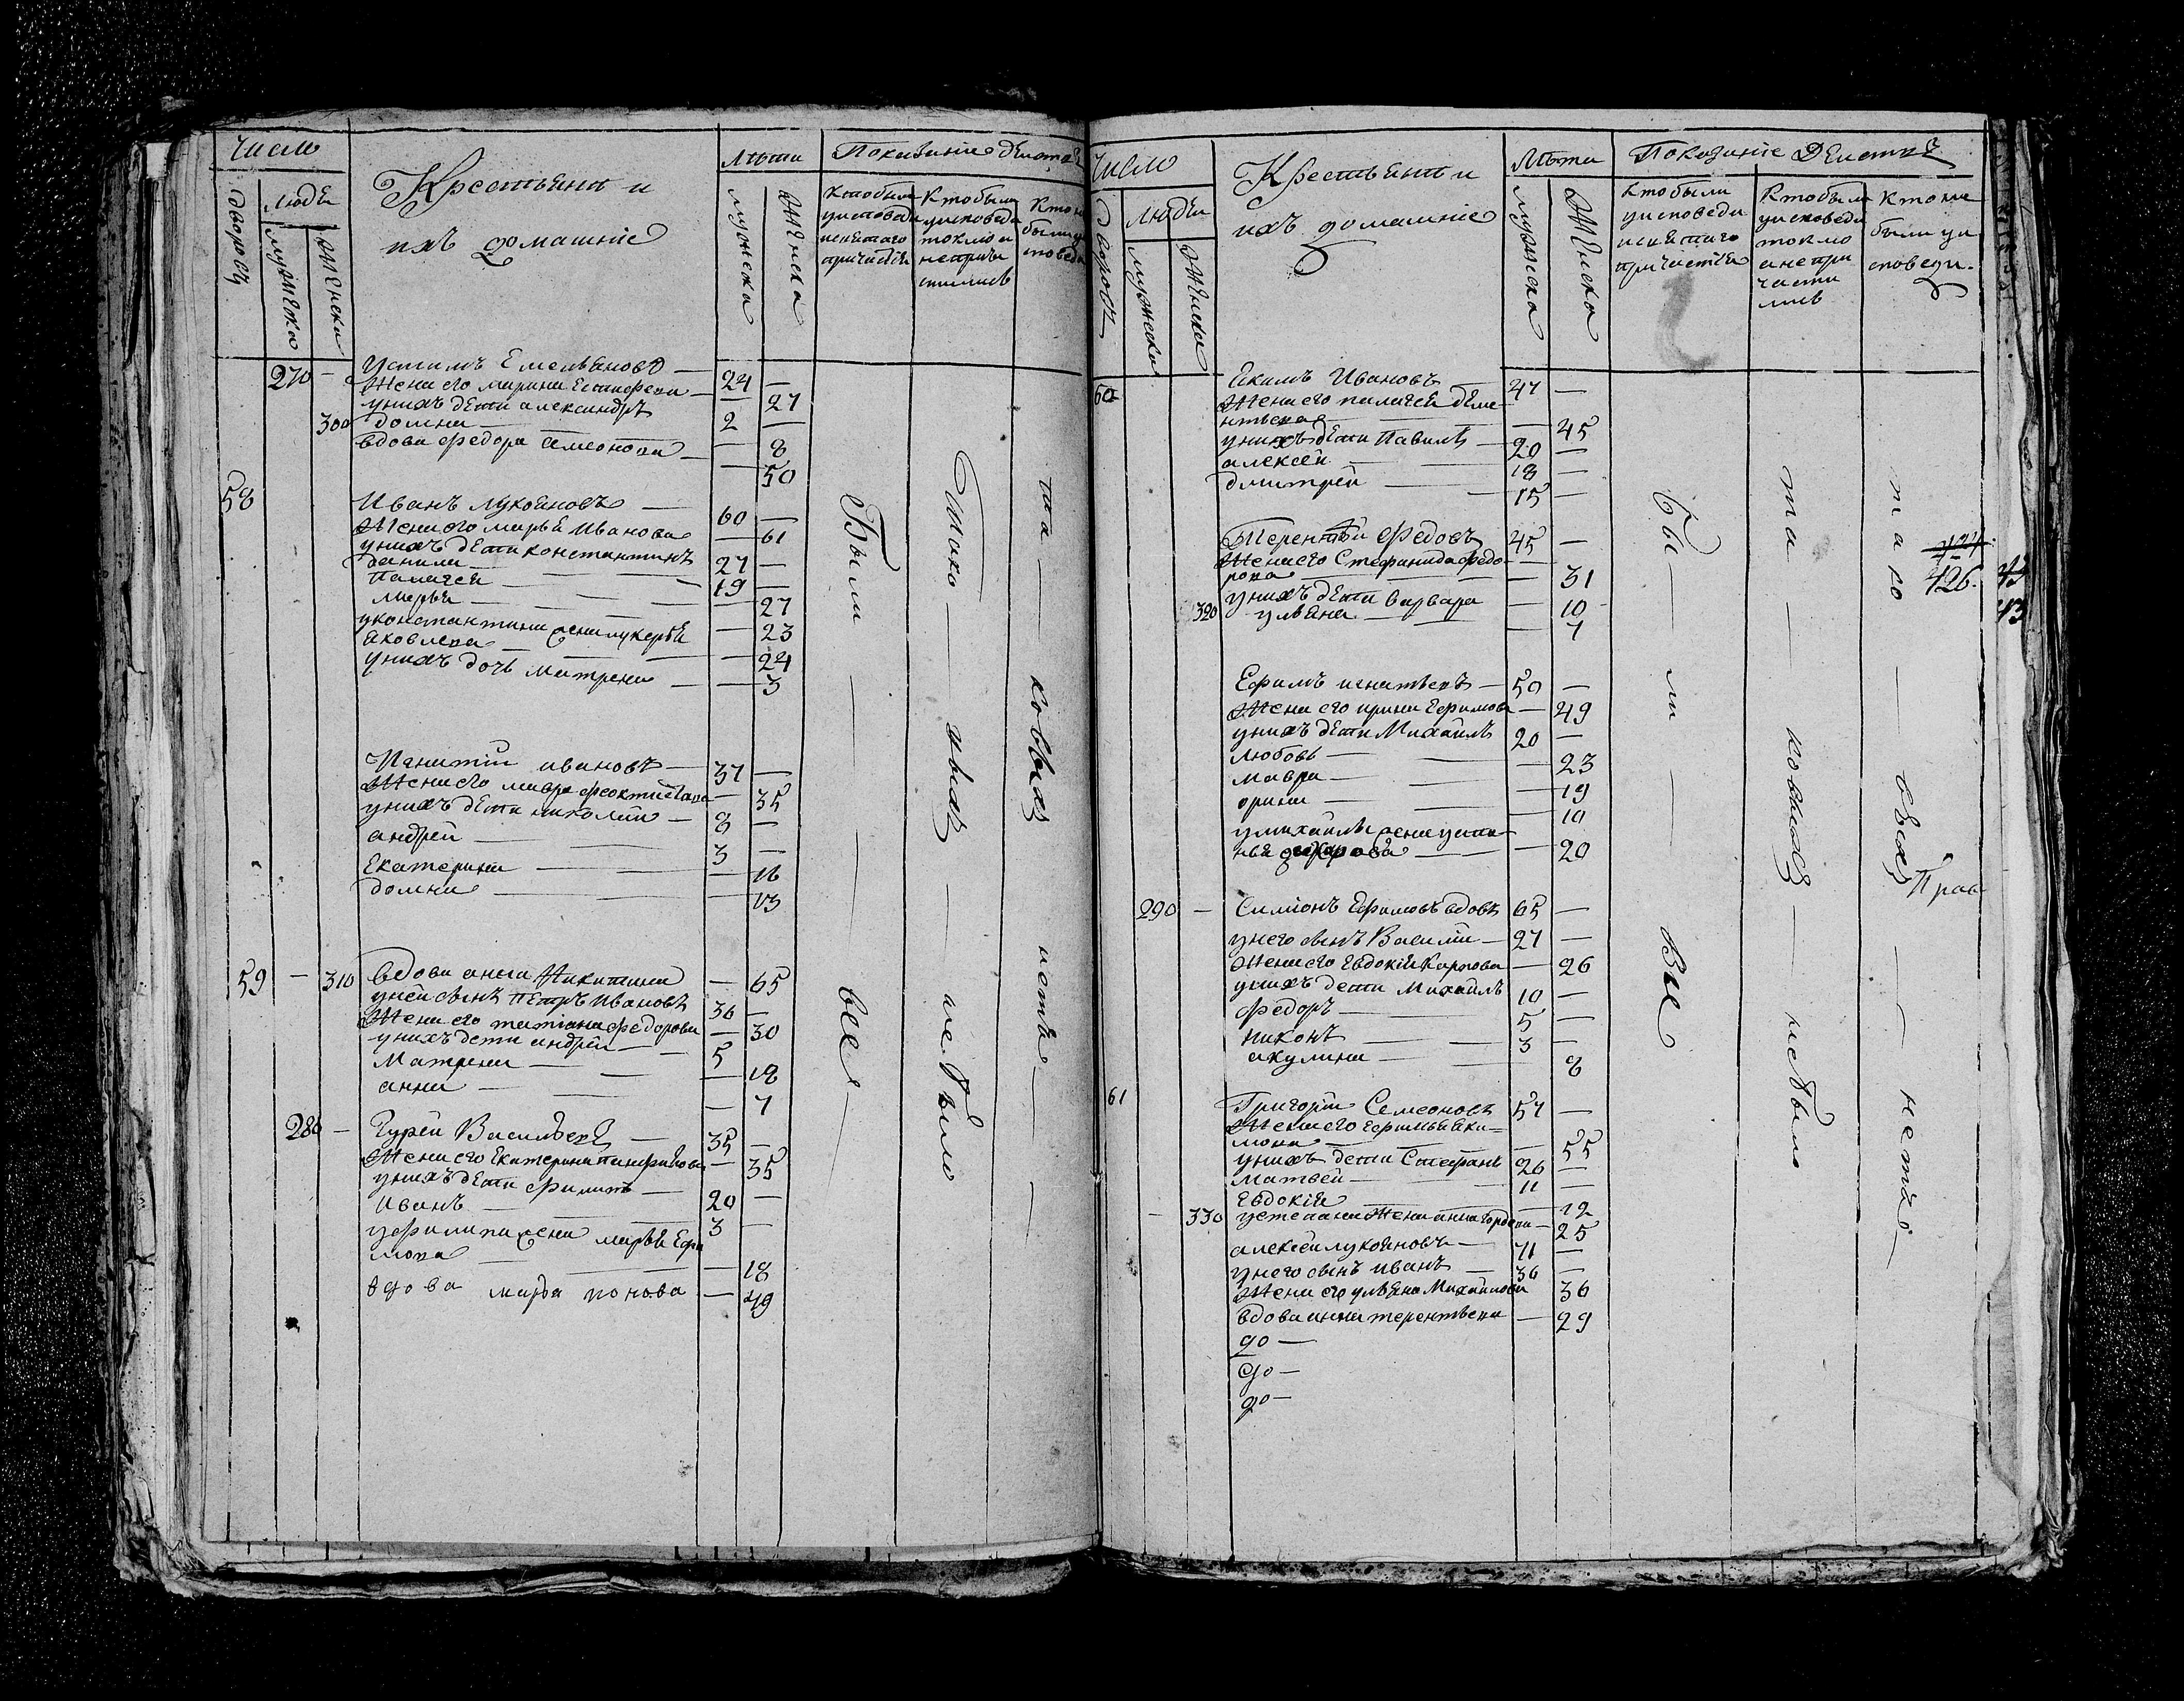 Число
Людей
дворовъ
мужеска
женска
Крестьянѣ и
ихъ домашніе
Лѣта
мужеска
женска
Показаніе
Кто были
у исповеди
и святаго
причастія
Кто были
у исповеди
токмо и
не прича
стились
270 — Устинъ Емельяновъ — 24 —
Жена его Марина — 27
у нихъ дети александръ 2 —
300 домна — 8
вдова федора — 50
58 Иванъ лукояновъ — 60 —
Жена его марья Иванова — 61
у нихъ дети константинъ 27 —
данила — 19 —
Палагея — 27
марья — 23
у константина жена лукерья
яковлева — 24
у нихъ дочь матрена — 3
Игнатій ивановъ — 37 —
Жена его мавра феоктистова — 35
у нихъ дети николай — 8 —
андрей — 3 —
Екатерина — 16
домна — 13
59 — 310 вдова анна Никитина — 65
у ней сынъ Петръ Ивановъ 36 —
Жена его татіана федорова — 30
у нихъ дети андрей — 5
Матрена — 18
анна — 7
280 — Гурей Васильевъ — 35 —
Жена его Екатерина панфилова — 35
у нихъ дети филипъ — 20 —
Иванъ — 3 —
у филипа жена марья Ефи
мова — 18
вдова марья — 49
Были — все
Тако — выхъ — не было
та — ковыхъ — нетъ
Число
Людей
дворовъ
мужеска
женска
Крестьянѣ и
ихъ домашніе
Лѣта
мужеска
женска
Показаніе
Кто были
у исповеди
и святаго
причастія
Кто были
у исповеди
токмо
а не при
части
лись
Кто не
были у и
споведи.
60 Екимъ Ивановъ 47 —
Жена его палагея деме
нтьева — 45
у нихъ дети Павилъ — 20 —
алексей — 18 —
дмитрей — 15 —
Терентей федовъ 45 —
Жена его Стефанида федо
рова — 31
у нихъ дети варвара — 10
320 ульяна — 7
Ефимъ игнатьевъ — 50 —
Жена его ирина Ефимова — 49
у нихъ дети Михайлъ 20 —
любовь — 23
мавра — 19
орина — 10
у михайлы жена усти
нья — 20
290 — Симіонъ Ефимовъ вдовъ 65 —
у него сынъ Василій — 27 —
Жена его Евдокія Карпова — 26
у нихъ дети Михайлъ 10 —
федоръ — 5 —
никонъ — 3 —
акулина — 8
61 Григорій Семеоновъ 57 —
Жена его Ефимья Яки=
мова — 55
у нихъ дети Стефанъ 26 —
матвей — 11 —
Евдокія — 12
— 330 у степана жена анна — 25
алексей лукояновъ — 71 —
у него сынъ иванъ — 36 —
Жена его ульяна Михайлова 36
вдова анна терентьева — 29
до —
до —
до —
Бы — ли — Все
та — ковыхъ — не было
тако — выхъ — нетъ
426.
Прав